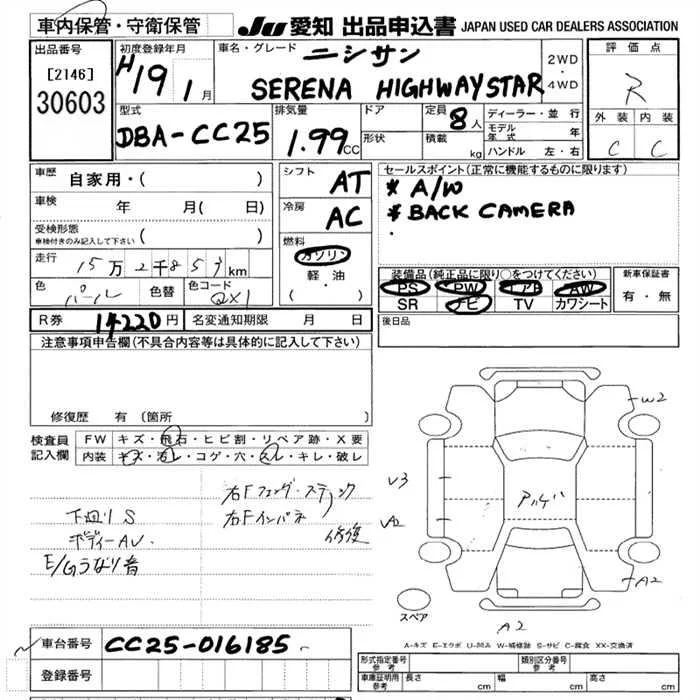 車内保管・守衛保管
JU 愛知 出品申込書 JAPAN USED CAR DEALERS ASSOCIATION
出品番号 [2146] 30603
初度登録年月 H19年1月
車名・グレード ニシサン
SERENA HIGHWAYSTAR
2WD・4WD
評価点 R
外装 内装
C C
型式 DBA-CC25
排気量 1.99CC
ドア
形状
定員 8人
積載 kg
ディーラー・並行
モデル年式 年
ハンドル 左・右
車歴 自家用・( )
車検 年 月( 日)
受検形態
車検付きのみ記入して下さい ( )
走行 15万2千857km
色 パール 色替 色コード QX1
シフト AT
冷房 AC
燃料
ガソリン
軽・油
( )
セールスポイント(正常に機能するものに限ります)
* A/W
* BACK CAMERA
装備品(純正品に限り○をつけてください)
PS PW エアB AW
SR ナビ TV カワシート
新車保証書
有・無
R券 14220円 名変通知期限 月 日
後日品
注意事項申告欄(不具合内容等は具体的に記入して下さい)
修復歴 有(箇所
検査員記入欄
FW キズ・飛石・ヒビ割・リペア跡・X要
内装 キズ・汚レ・コゲ・穴・スレ・キレ・破レ
下廻りS
ボディーAU.
E/Gうなり音
右Fフェンダ・ステップ
右Fインパネ
修復
W2
U3
A2
A2
スペア
A2
A-キズ E-エクボ U-凹み W-補修跡 S-サビ C-腐食 XX-交換済
車台番号 CC25-016185
登録番号
形式指定番号 参考
類別区分番号 参考
車庫証明用 参考 長さ cm 幅 cm 高さ cm